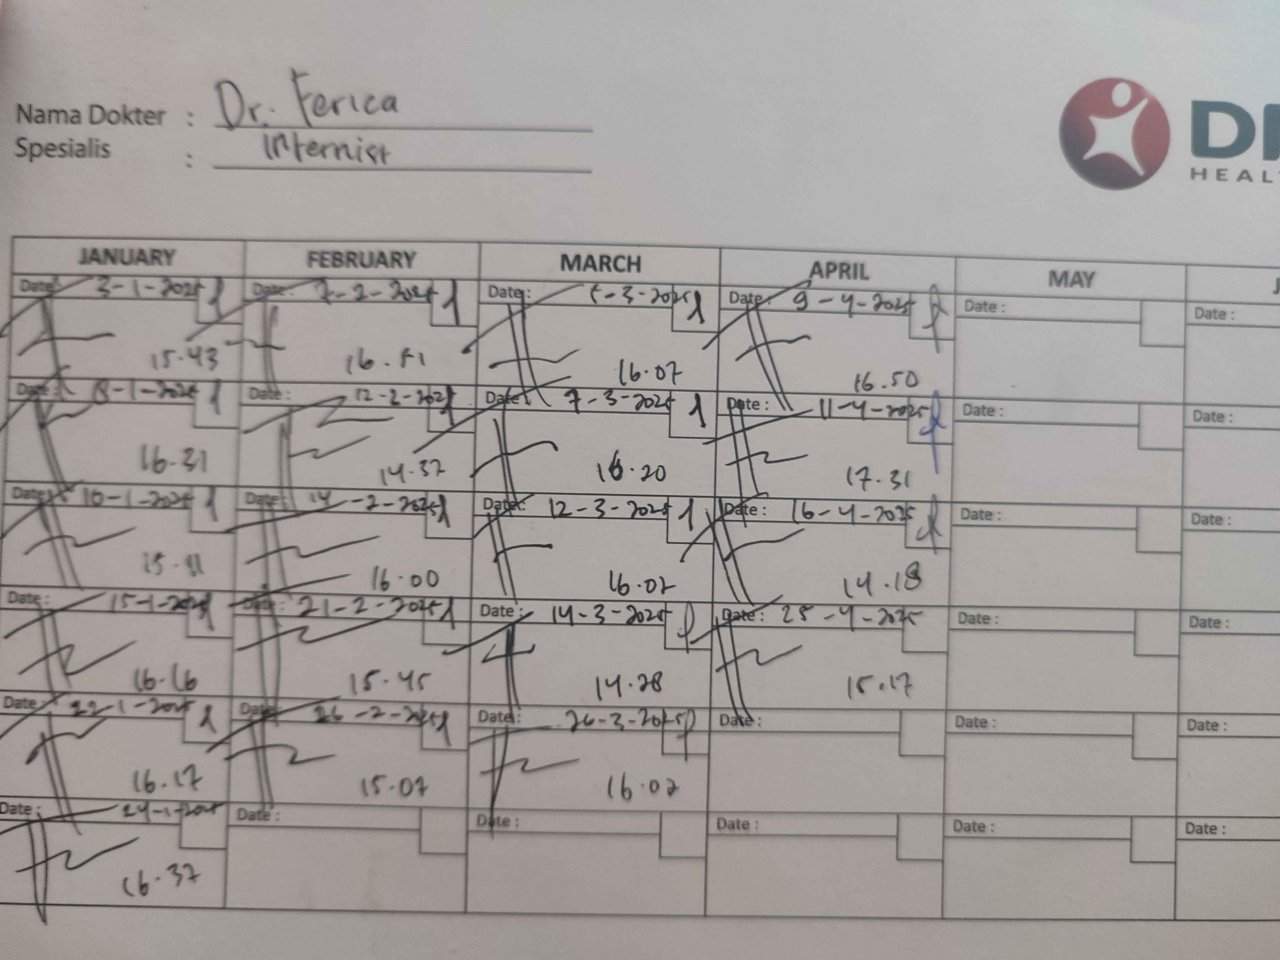 Nama Dokter : Dr. Ferica
Spesialis : Internist
DI
HEAL
JANUARY FEBRUARY MARCH APRIL MAY J
Date: 3-1-2025 Date: 7-2-2025 Date: 5-3-2025 Date: 9-4-2025 Date: Date:
15.43 16.51 16.07 16.50
Date: 8-1-2025 Date: 12-2-2025 Date: 7-3-2025 Date: 11-4-2025 Date: Date:
16.31 14.37 16.20 17.31
Date: 10-1-2025 Date: 14-2-2025 Date: 12-3-2025 Date: 16-4-2025 Date: Date:
15.11 16.00 16.02 14.18
Date: 15-1-2025 Date: 21-2-2025 Date: 14-3-2025 Date: 25-4-2025 Date: Date:
16.16 15.45 14.28 15.17
Date: 22-1-2025 Date: 26-2-2025 Date: 26-3-2025 Date: Date: Date:
16.17 15.07 16.02
Date: 24-1-2025 Date: Date: Date: Date: Date:
16.37